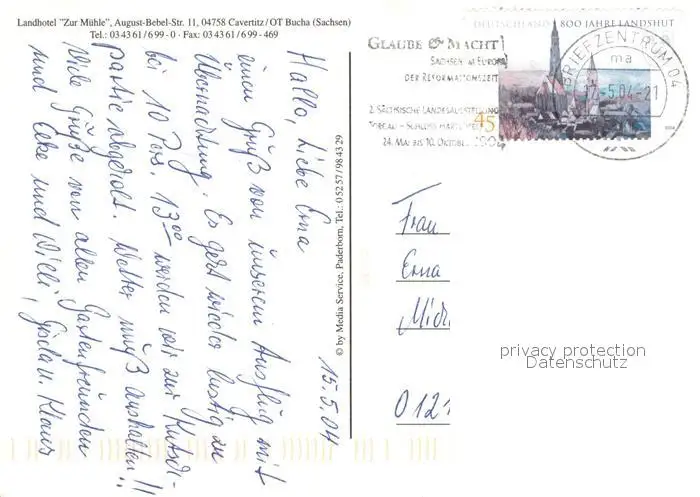 Landhotel "Zur Mühle", August-Bebel-Str. 11, 04758 Cavertitz/OT Bucha (Sachsen)
Tel.: 03 43 61 / 6 99 - 0 · Fax: 03 43 61 / 6 99 - 469
15.5.04
Hallo, liebe Erna
einen Gruß von unserem Ausflug mit
Übernachtung. Es geht wieder lustig zu
bei 10 Pers. 13⁰⁰ werden wir zur Kutsch-
partie abgeholt. Wetter muß aushalten!!
Viele Grüße von allen Gartenfreunden
und Eeke und Willi, Gisela u. Klaus
© by Media Service, Paderborn, Tel.: 0 52 57 / 98 43 29
GLAUBE & MACHT
SACHSEN IM EUROPA
DER REFORMATIONSZEIT
2. SÄCHSISCHE LANDESAUSSTELLUNG
TORGAU - SCHLOSS HARTENFELS
24. MAI BIS 10. OKTOBER 2004
DEUTSCHLAND 800 JAHRE LANDSHUT
45
BRIEFZENTRUM 04
ma
17.-5.04-21
Frau
Erna
Mich
012
privacy protection
Datenschutz